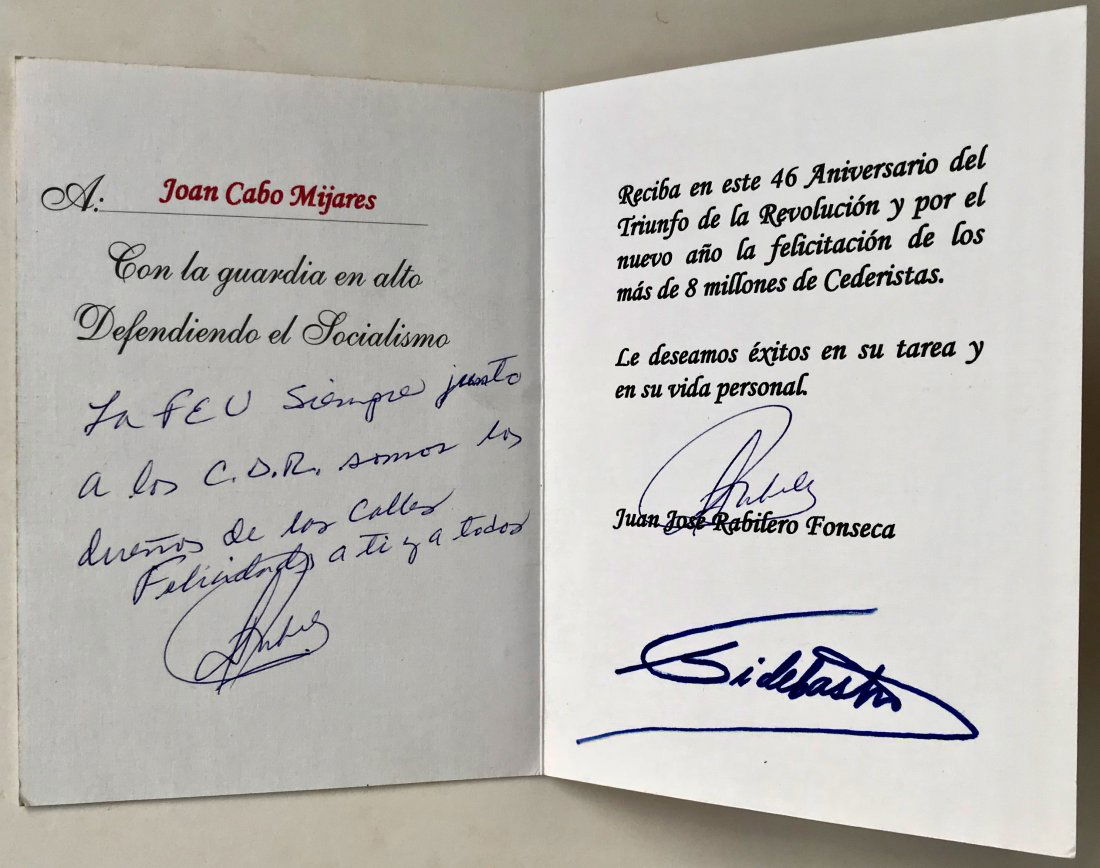 A: Joan Cabo Mijares
Con la guardia en alto
Defendiendo el Socialismo
La FEU siempre junto
a los C.D.R. somos los
dueños de las calles
Felicidades a ti y a todos
Reciba en este 46 Aniversario del
Triunfo de la Revolución y por el
nuevo año la felicitación de los
más de 8 millones de Cederistas.
Le deseamos éxitos en su tarea y
en su vida personal.
Juan José Rabilero Fonseca